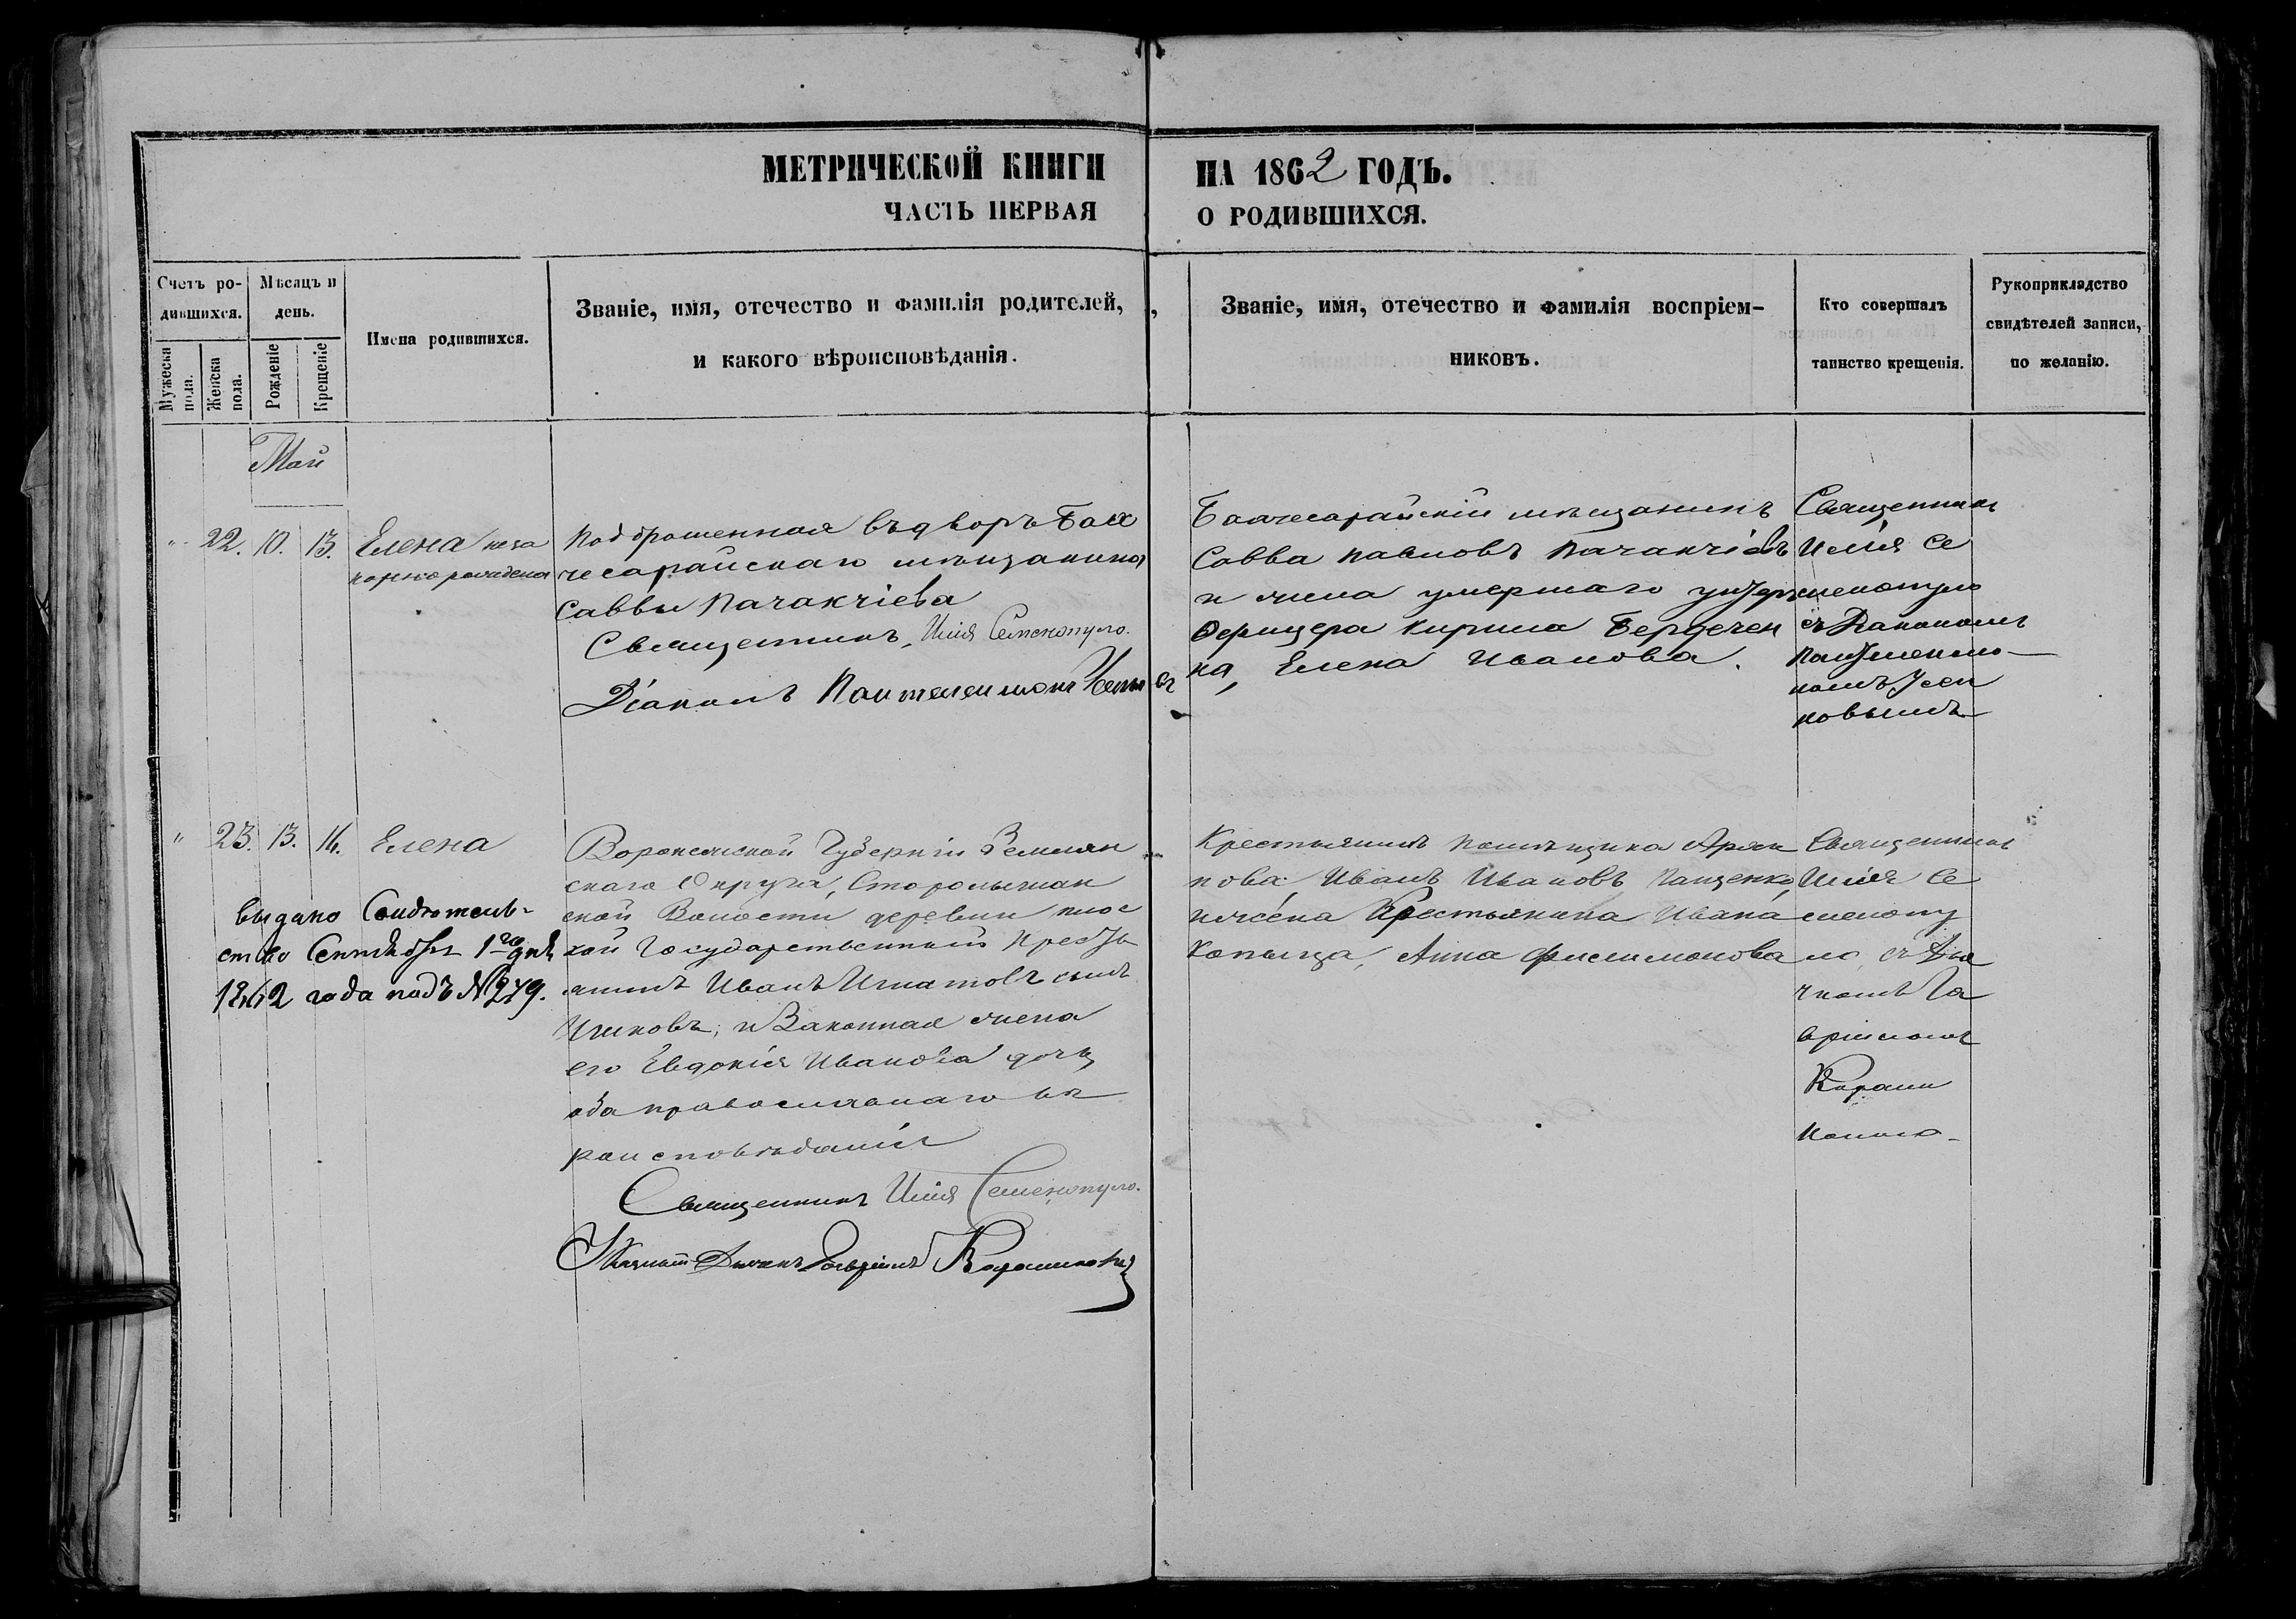 МЕТРИЧЕСКОЙ КНИГИ НА 1862 ГОДЪ.
ЧАСТЬ ПЕРВАЯ О РОДИВШИХСЯ.
Счетъ ро-
дившихся.
Мужеска пола.
Женска пола.
Мѣсяцъ и
день.
Рожденіе
Крещеніе
Имена родившихся.
Званіе, имя, отечество и фамилія родителей,
и какого вѣроисповѣданія.
Званіе, имя, отечество и фамилія воспріем-
никовъ.
Кто совершалъ
таинство крещенія.
Рукоприкладство
свидѣтелей записи,
по желанію.
Май
" 22. 10. 13. Елена неза
конно рожденая
Подброшенная въ дворъ Бах
чесарайскаго мѣщанина
Саввы Пачакчіева
Священникъ, Илія Семенопуло.
Діаконъ Пантелеимонъ
Бахчесарайскій мѣщанинъ
Савва Павловъ Пачакчіевъ
и жена умершаго унтеръ
Офицера Кирила Бердечен
ка, Елена Иванова.
Священникъ
Илія Се
менопуло
съ Діакономъ
новымъ
" 23. 13. 14. Елена
Выдано Свидѣтель-
ство Сентября 1го дня
1862 года подъ № 279.
Воронежской Губерніи Землян
скаго Округа,
ской Волости деревни Плос
кой Государственный Кресть
янинъ Иванъ Игнатовъ сынъ
и Законная жена
его Евдокія Иванова дочь,
оба православнаго вѣ
роисповѣданія
Священникъ Илія Семенопуло.
Дьячекъ Гавріилъ
Крестьянинъ помѣщика
нова Иванъ Ивановъ Пащенко
и жена Крестьянина Ивана
Копыца, Анна Филимонова
Священникъ
Илія Се
менопу
ло, съ Дья
чкомъ Га
вріиломъ